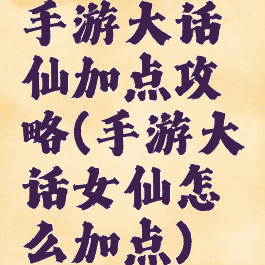 手游大话
仙加点攻
略(手游大
话女仙怎
么加点)